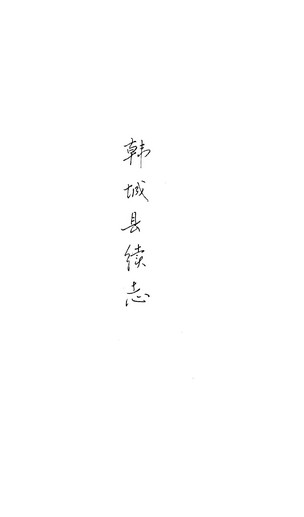 韩城县续志